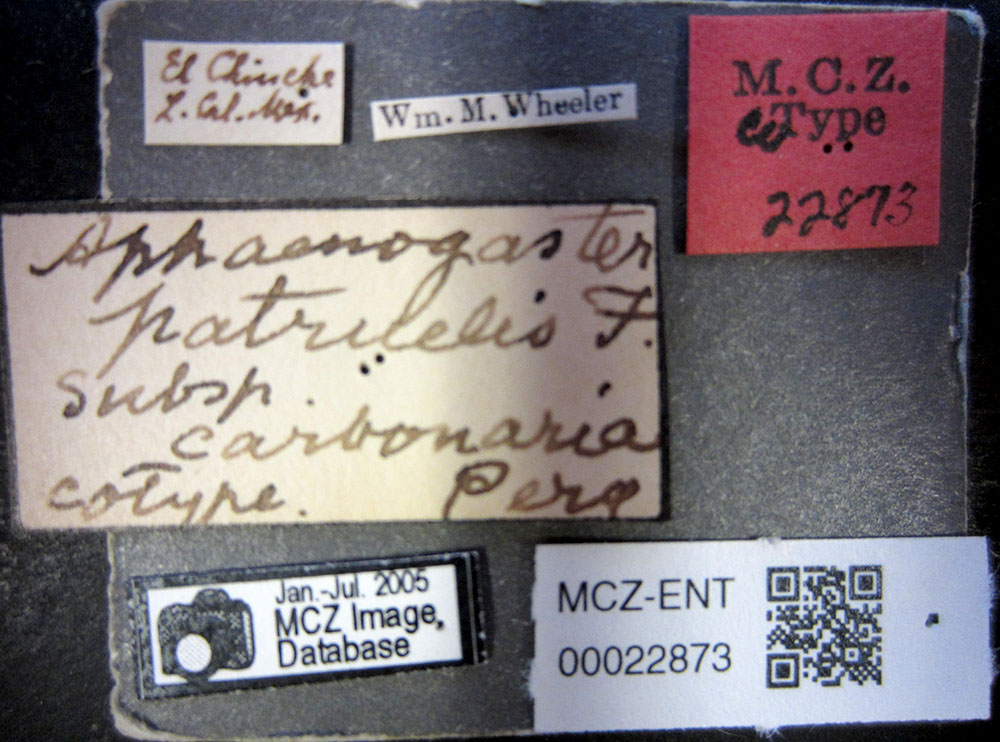 El Chinche
L. Cal. Mex.
Wm. M. Wheeler
M. C. Z.
CoType
22873
Aphaenogaster
patruelis F.
subsp.
carbonaria
cotype. Perg
Jan.-Jul. 2005
MCZ Image
Database
MCZ-ENT
00022873